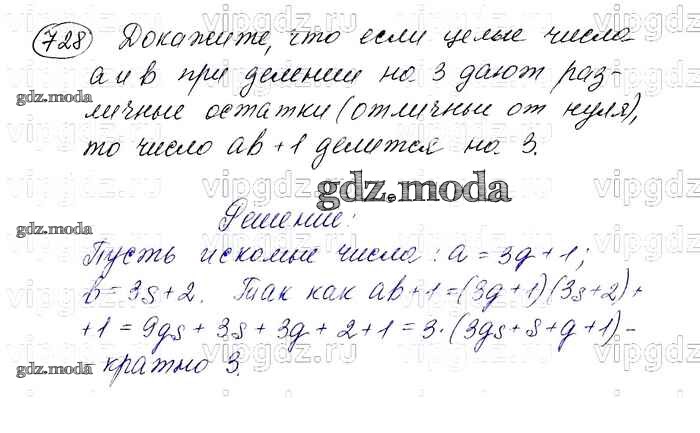 728 Докажите, что если целые числа
a и b при делении на 3 дают раз-
личные остатки (отличные от нуля),
то число ab+1 делится на 3.
gdz.moda
Решение:
Пусть искомые числа: a = 3q+1;
b = 3s+2. Так как ab+1 = (3q+1)(3s+2)+
+1 = 9qs + 3s + 3q + 2 + 1 = 3·(3qs+s+q+1) –
– кратно 3.
gdz.moda
gdz.moda
gdz.moda
gdz.moda
vipgdz.ru